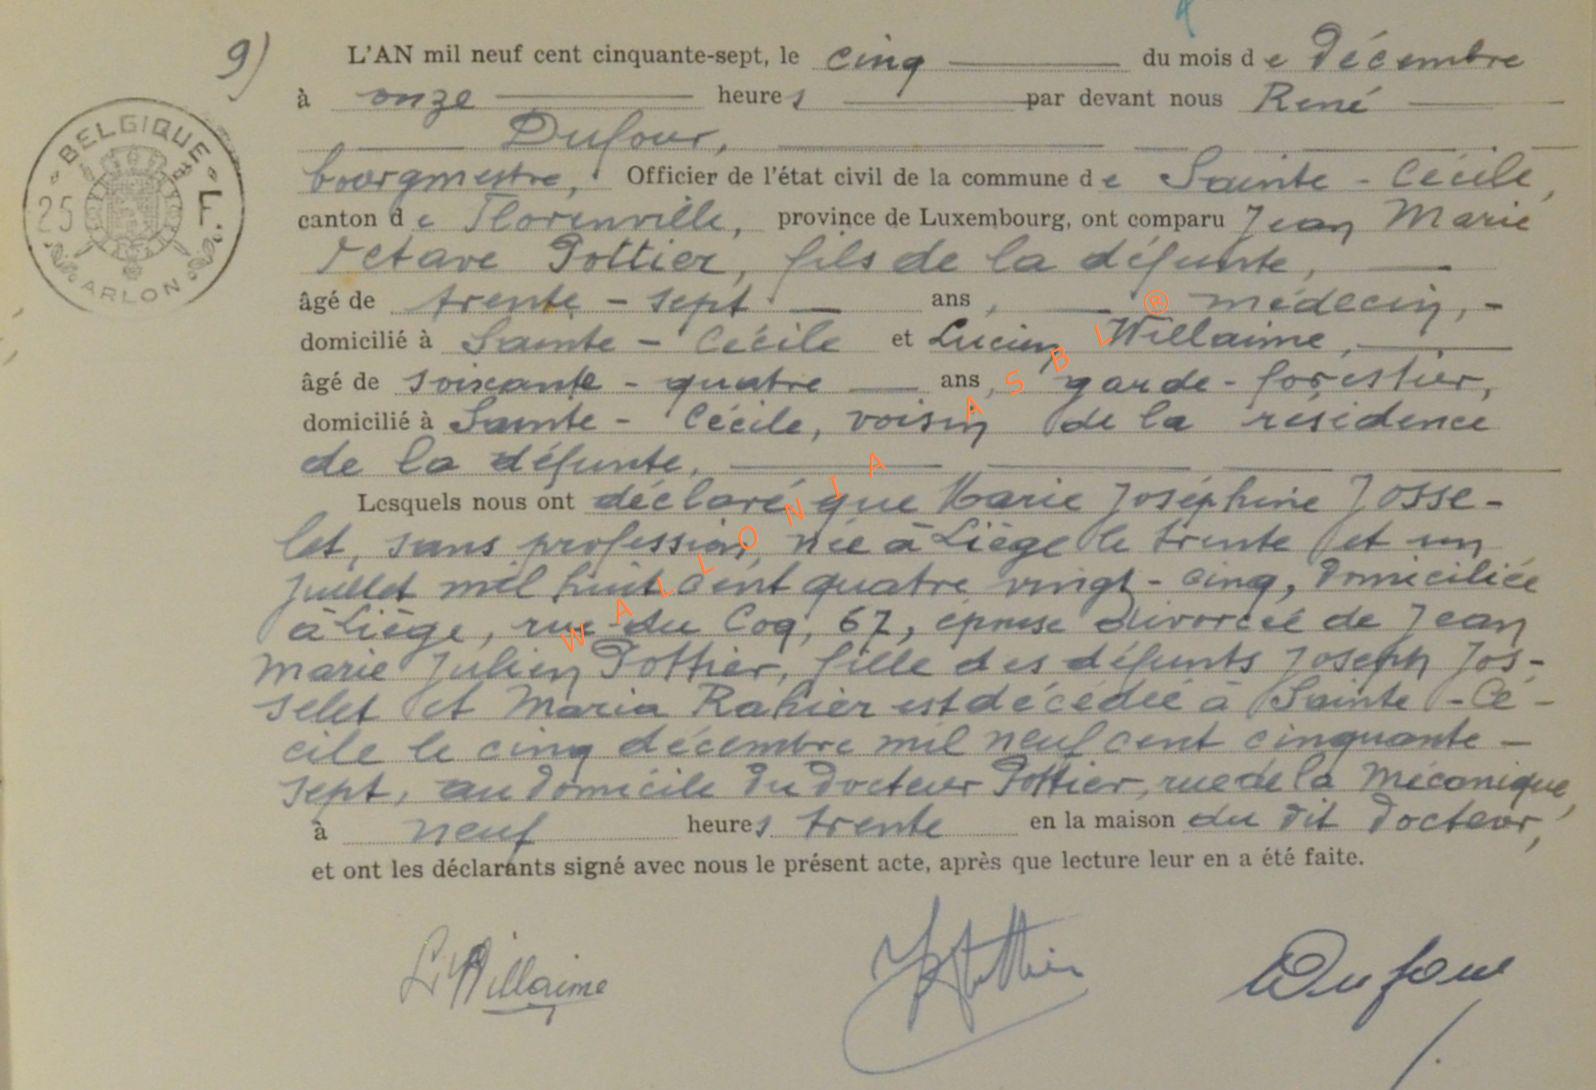 9)
L'AN mil neuf cent cinquante-sept, le cinq du mois de Décembre
à onze heures par devant nous René
Dufour,
bourgmestre, Officier de l'état civil de la commune de Sainte - Cécile,
canton de Florenville, province de Luxembourg, ont comparu Jean Marie
Octave Pottier, fils de la défunte,
âgé de trente - sept ans, médecin, -
domicilié à Sainte - Cécile et Lucien Willaime,
âgé de soixante - quatre ans, garde - forestier,
domicilié à Sainte - Cécile, voisin de la résidence
de la défunte,
Lesquels nous ont déclaré que Marie Joséphine Josse-
let, sans profession, née à Liège le trente et un
juillet mil huit cent quatre vingt - cinq, domiciliée
à Liège, rue du Coq, 67, épouse divorcée de Jean
Marie Julien Pottier, fille des défunts Joseph Jos-
selet et Maria Rahier est décédée à Sainte - Cé -
cile le cinq décembre mil neuf cent cinquante -
sept, au domicile du Docteur Pottier, rue de la Mécanique,
à neuf heures trente en la maison du dit Docteur,
et ont les déclarants signé avec nous le présent acte, après que lecture leur en a été faite.
L. Willaime
JPottier
Dufour
BELGIQUE
25 F.
ARLON
WALLONIA ASBL ®